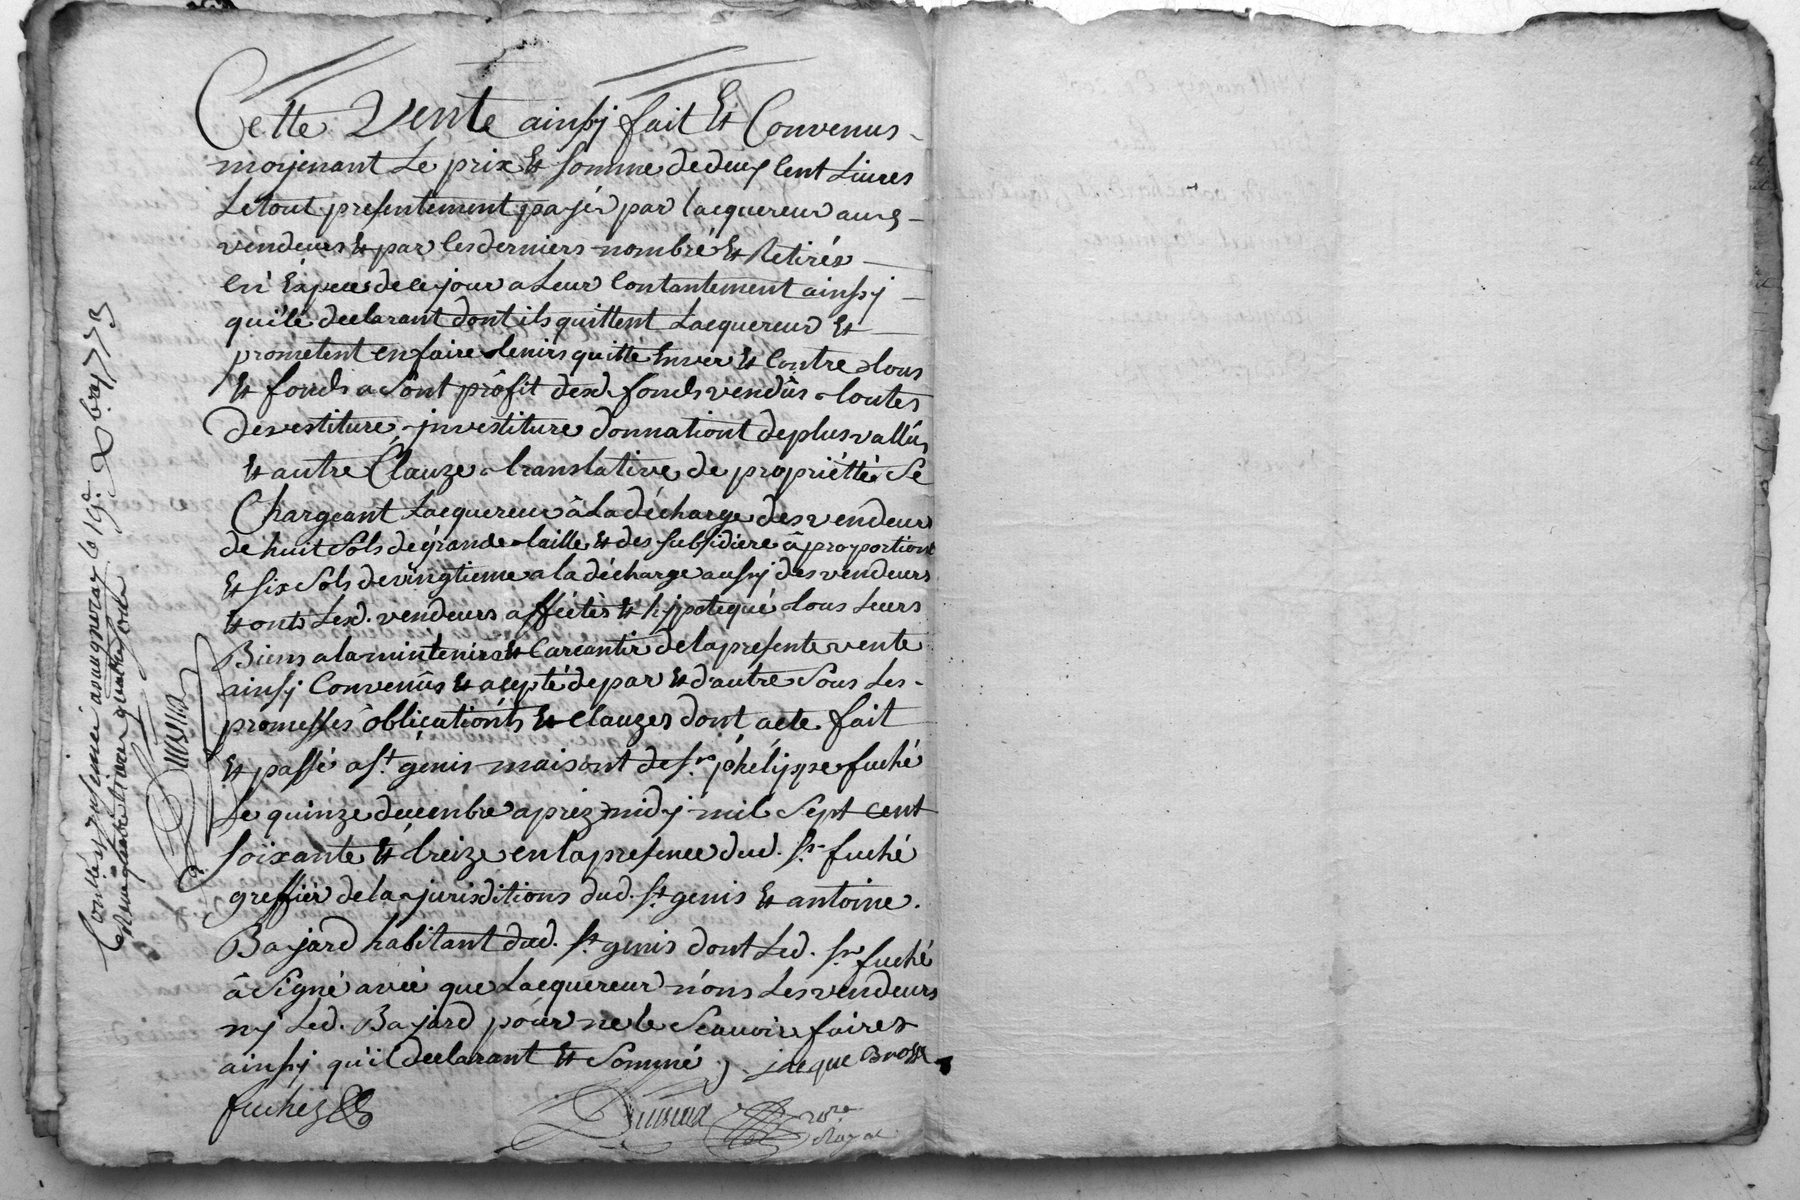 Cette Vente ainsy fait Et Convenus
moyenant Le prix Et somme de deux Cent Livres
Le tout presentement payér par lacquereur aux
vendeurs Et par les derniers nombré Et Retirés
En Espece de ce jour a Leur Contantement ainsy
qu'il declarant dont ils quittent Lacquereur Et
prometent en faire tenirs quitte Enver Et Contre tous
Et fonds a sont prôfit desd. fonds vendûs toutes
devestiture, jnvestiture donnationt de plus vallûs
Et autre Clauze translative de propriétté Se
Chargeant Lacquereur â La décharge des vendeurs
de huit sols de grande taille Et des subsidiere â proportiont
Et six Sols de vingtieme a la décharge aussy des vendeurs
Et onts Lesd. vendeurs afféctés Et hypotequé tous Leurs
Biens a la mintenirs Et Careantir de la presente vente
ainsy Convenûs Et acepté de par Et d'autre Sous Les
promesses oblicationts Et Clauzes dont acte fait
Et passé a st. genis maisont de sr. phélippe fuché
Le quinze decembre apréz midy mil Sept cent
soixante Et treize en la presence dud. sr. fuché
greffier de la jurisditions dud. st genis Et antoine
Bayard habitant dud. st genis dont Led. sr. fuché
â Signé aveé que Lacquereur nons Les vendeurs
ny Led. Bayard pour ne le Scauoir faires
ainsy qu'il declarant Et Sommé, jacque Bross
fuchez
Royal
Conllé
le 19e Xbre 1773